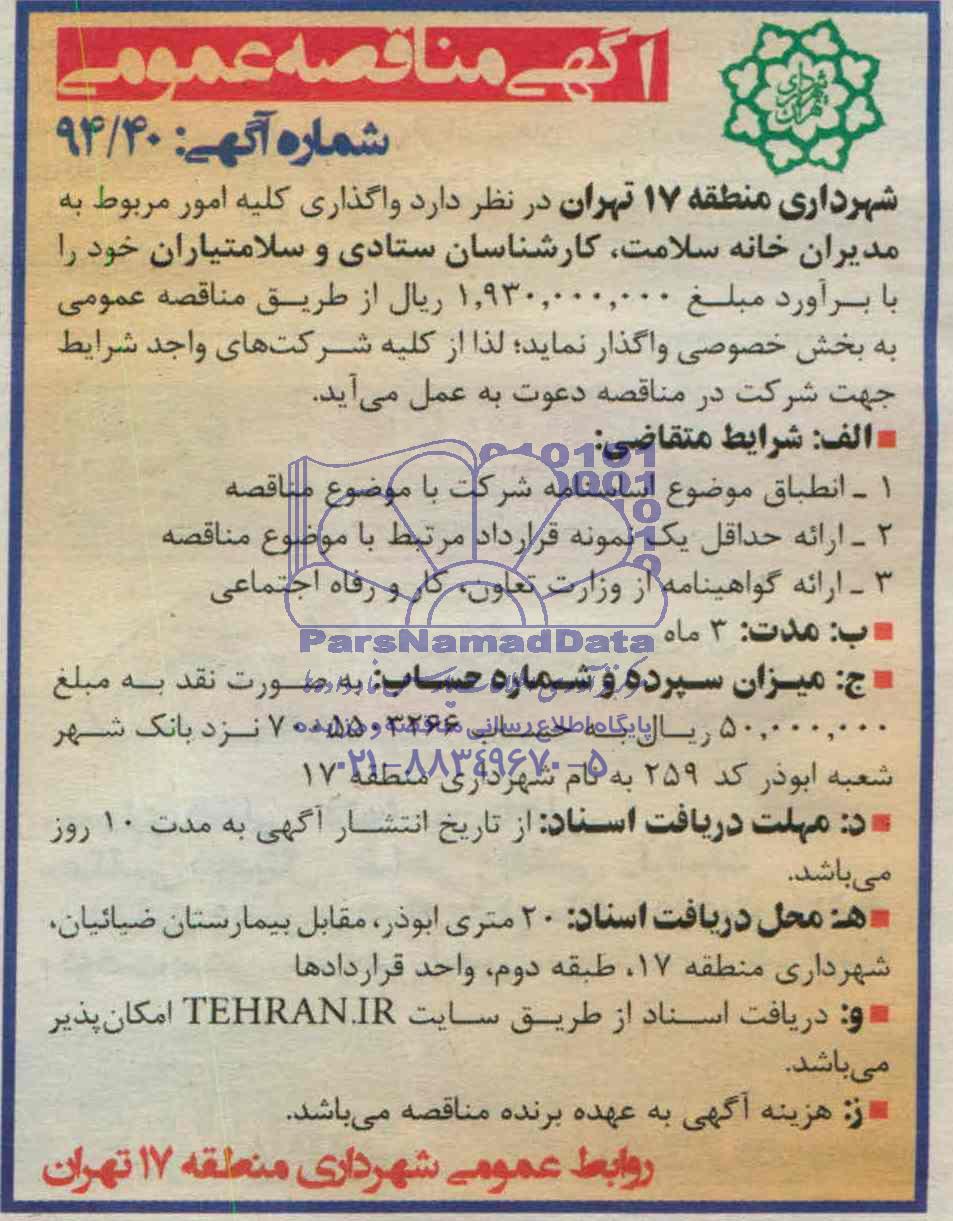 آگهی مناقصه عمومی
شهرداری تهران
شماره آگهی: ۹۴/۴۰
شهرداری منطقه ۱۷ تهران در نظر دارد واگذاری کلیه امور مربوط به
مدیران خانه سلامت، کارشناسان ستادی و سلامتیاران خود را
با برآورد مبلغ ۱,۹۳۰,۰۰۰,۰۰۰ ریال از طریق مناقصه عمومی
به بخش خصوصی واگذار نماید؛ لذا از کلیه شرکت‌های واجد شرایط
جهت شرکت در مناقصه دعوت به عمل می‌آید.
الف: شرایط متقاضی:
۱ ـ انطباق موضوع اساسنامه شرکت با موضوع مناقصه
۲ ـ ارائه حداقل یک نمونه قرارداد مرتبط با موضوع مناقصه
۳ ـ ارائه گواهینامه از وزارت تعاون، کار و رفاه اجتماعی
ب: مدت: ۳ ماه
ParsNamadData
ج: میزان سپرده و شماره حساب: به صورت نقد به مبلغ
۵۰,۰۰۰,۰۰۰ ریال به حساب نزد بانک شهر
پایگاه اطلاع رسانی مناقصه و مزایده
شعبه ابوذر کد ۲۵۹ به نام شهرداری منطقه ۱۷
۰۲۱-۸۸۳۴۹۶۷۰-۵
د: مهلت دریافت اسناد: از تاریخ انتشار آگهی به مدت ۱۰ روز
می‌باشد.
هـ: محل دریافت اسناد: ۲۰ متری ابوذر، مقابل بیمارستان ضیائیان،
شهرداری منطقه ۱۷، طبقه دوم، واحد قراردادها
و: دریافت اسناد از طریق سایت TEHRAN.IR امکان‌پذیر
می‌باشد.
ز: هزینه آگهی به عهده برنده مناقصه می‌باشد.
روابط عمومی شهرداری منطقه ۱۷ تهران